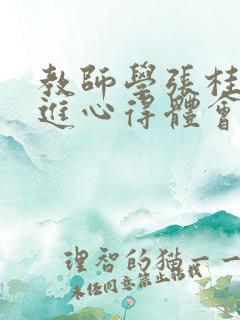 教師學張桂
進心得體會
理智的猫一一
未经同意禁止转载